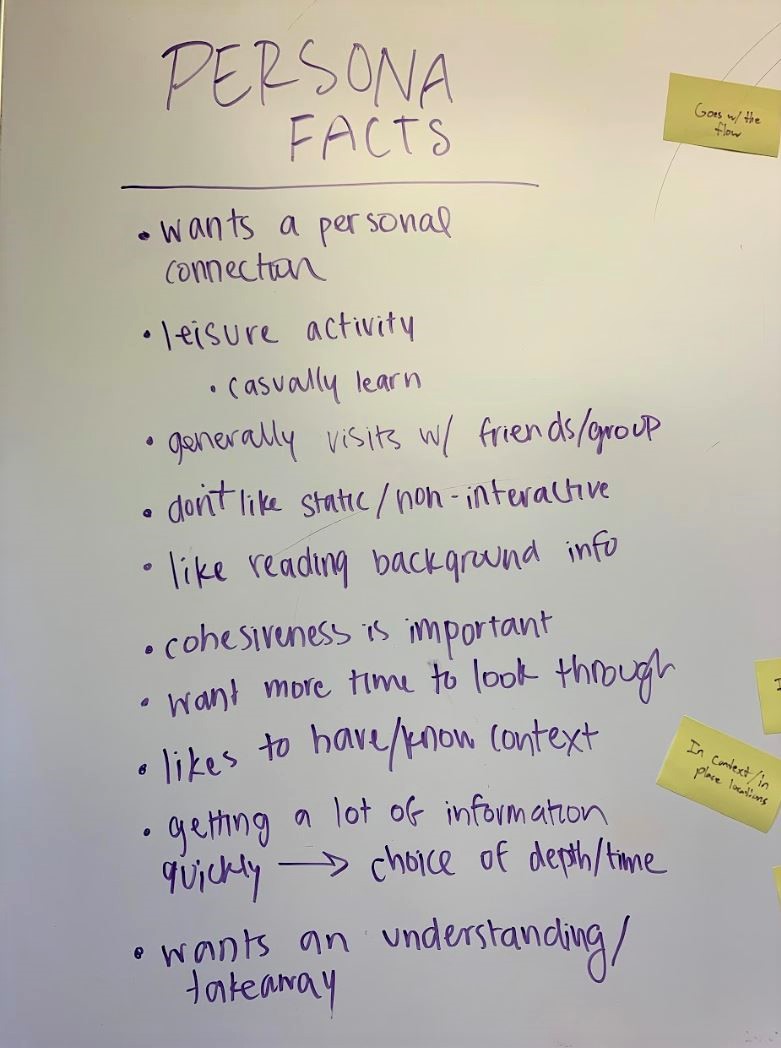 PERSONA
FACTS
• wants a personal
connection
• leisure activity
• casually learn
• generally visits w/ friends/group
• don't like static/non-interactive
• like reading background info
• cohesiveness is important
• want more time to look through
• likes to have/know context
• getting a lot of information
quickly → choice of depth/time
• wants an understanding/
takeaway
Goes w/ the
flow
In context/in
place locations